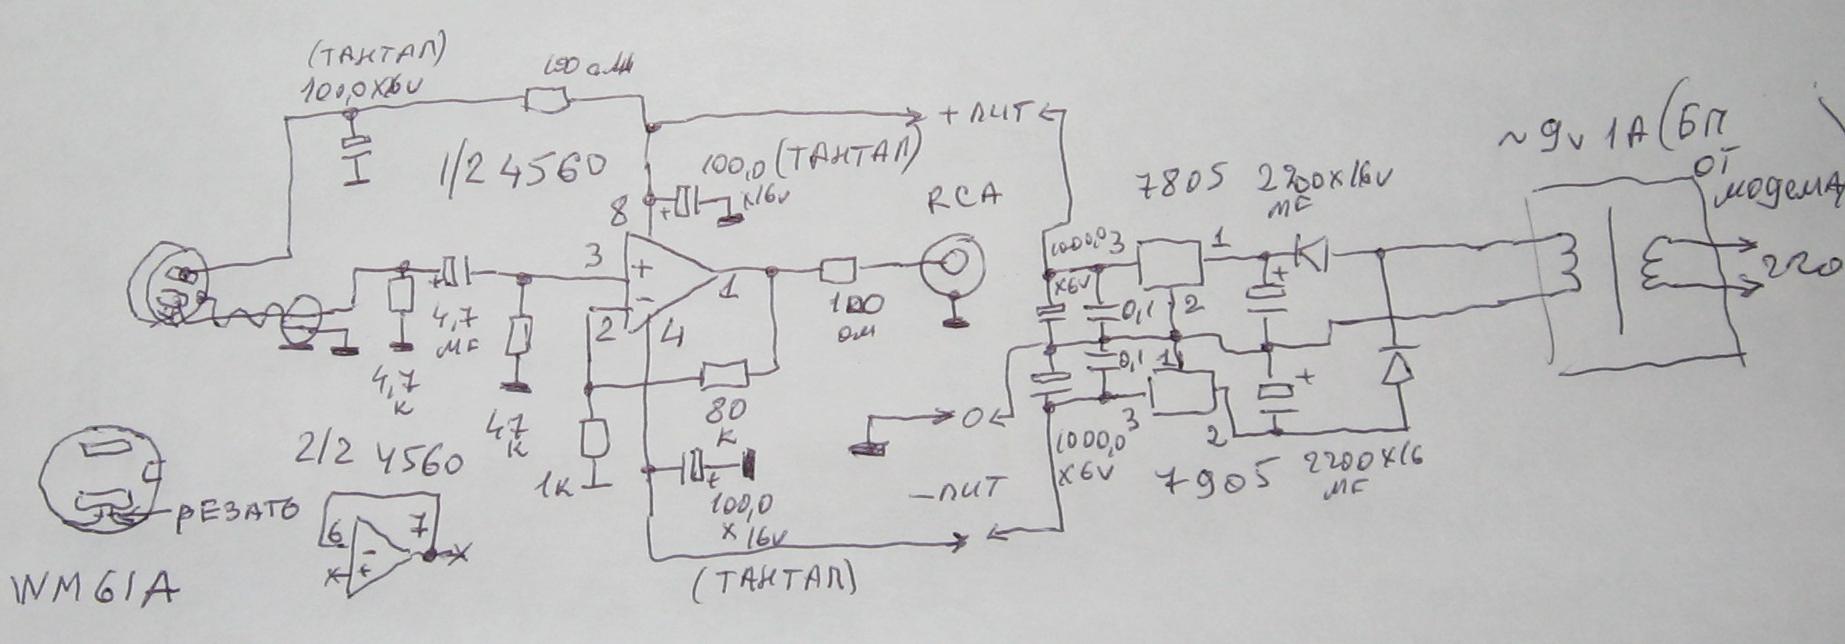 (ТАНТАЛ)
100,0X6V
100 ОМ
+ПИТ
~9V 1A (БП
ОТ
МОДЕМА
1/2 4560
100,0 (ТАНТАЛ)
X16V
RCA
7805
2200X16V
MF
8
3
+
-
2
1
4
100
ОМ
1000,0
X6V
3
1
2
+
220
4,7
MF
4,7
К
47
К
80
К
1К
0,1
0,1
1
3
2
+
0
1000,0
X6V
7905
2200X16
MF
-ПИТ
100,0
X16V
(ТАНТАЛ)
2/2 4560
РЕЗАТЬ
6
7
-
+
X
X
WM61A